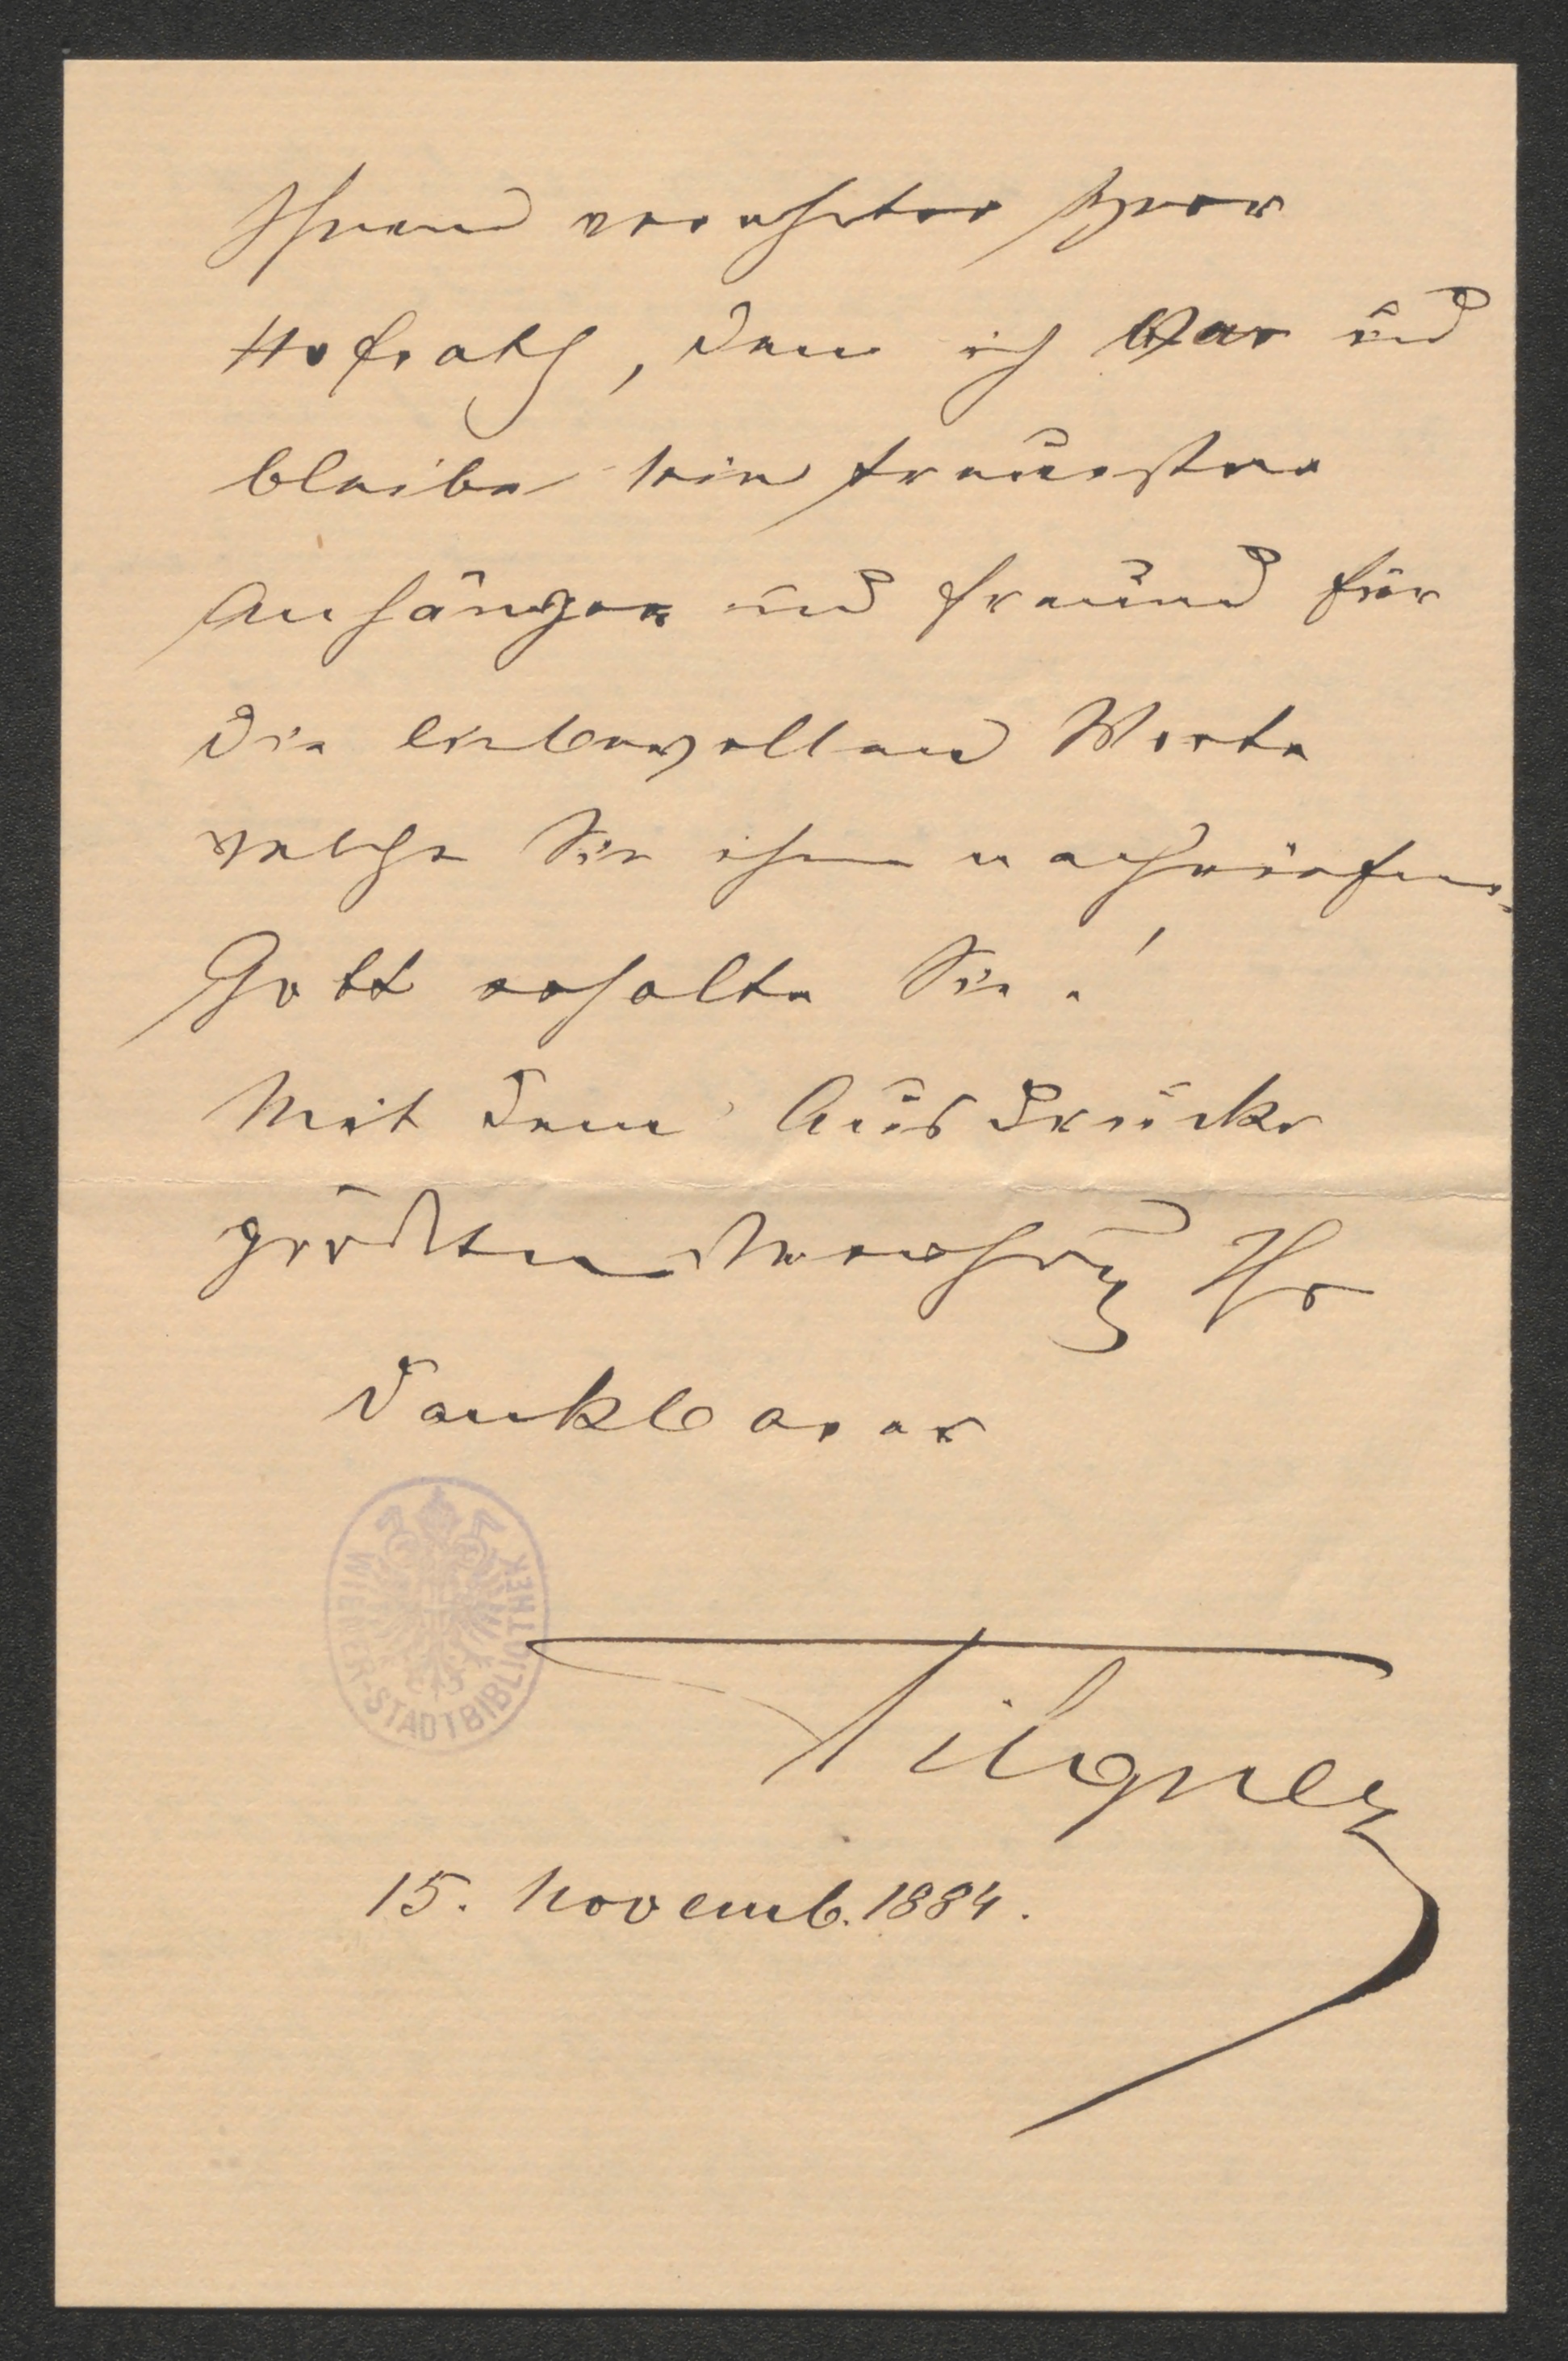 Ihnen verehrter Herr
Hofrath, dem ich war und
bleibe sein treuester
Anhänger und Freund für
die liebevollen Worte
welche Sie ihm nachrufen.
Gott erhalte Sie!
Mit dem Ausdrucke
größten Verehrung Ihr
dankbarer
WIENER-STADTBIBLIOTHEK
Tilgner
15. Novemb. 1884.